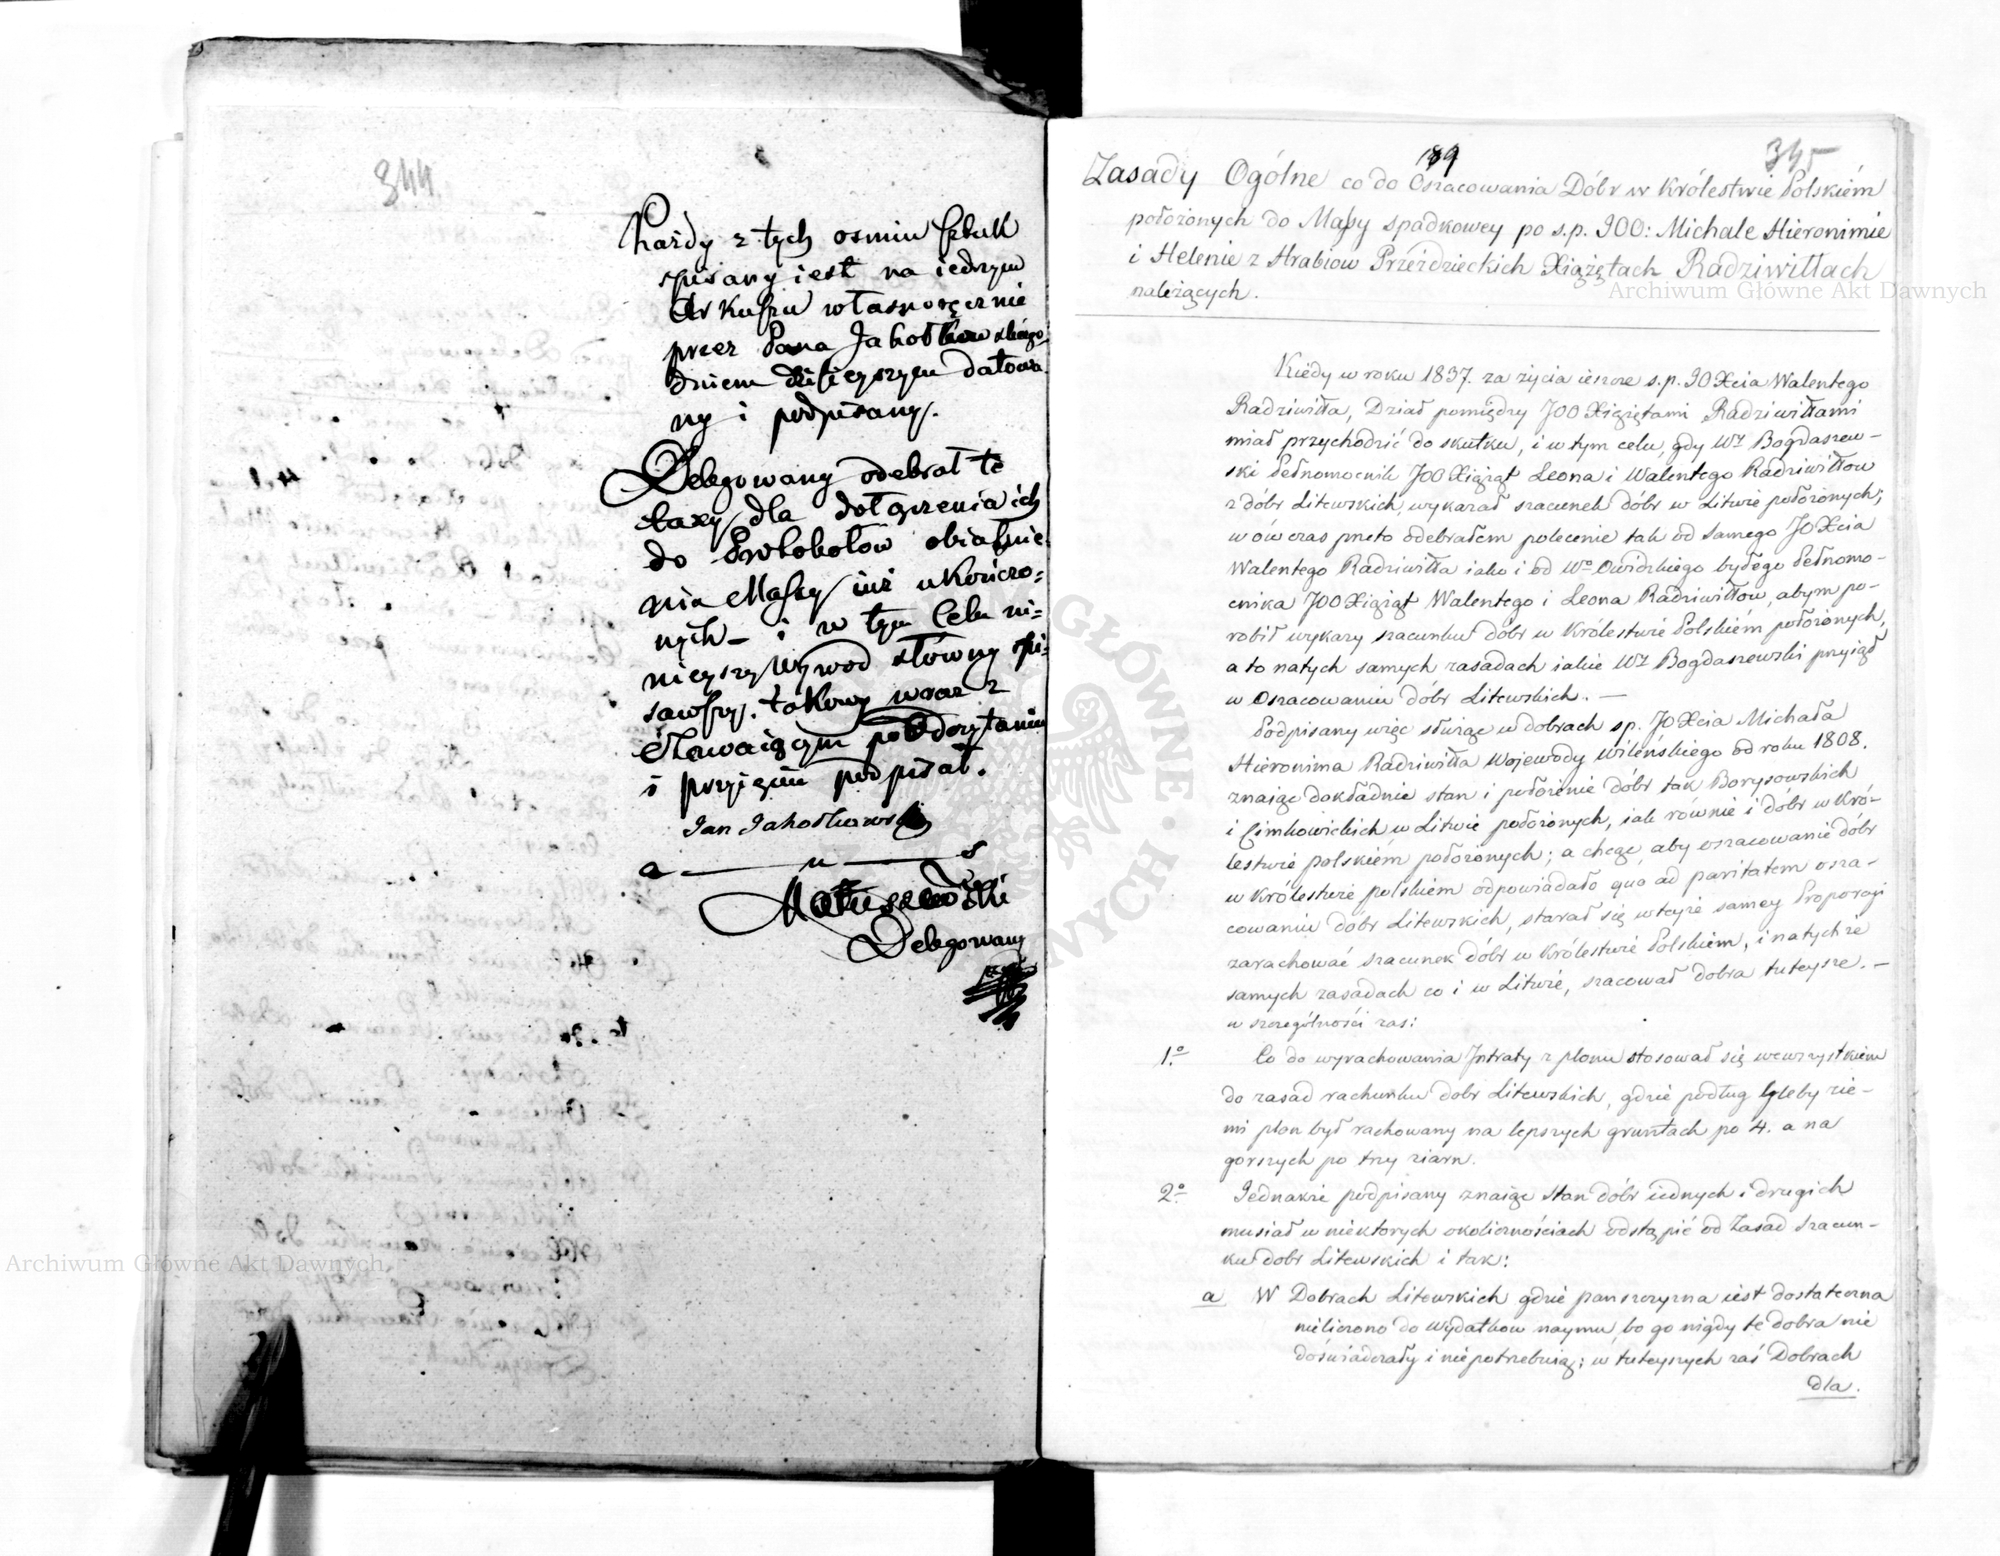 344
Każdy z tych osmiu sztuk
spisany iest na iednym
Arkuszu własnoręcznie
przez Pana Jakołkowskiego
dniem dzisieyszym datowa
ny i podpisany.
Delegowany odebrał te
taxy dla dołączenia ich
do Protokołów obiaśnie
nia Massy iuż ukończo=
nych – i w tym Celu ni=
nieyszy Wywod słowny spi=
sawszy, takowy wraz z
Stawaiącym po odczytaniu
i przyięciu podpisał.
Jan Jakołkowski
a — u — s
Matuszewski
Delegowany
189
345
Zasady Ogólne co do Oszacowania Dóbr w Królestwie Polskiém
położonych do Massy spadkowey po s.p. JOO: Michale Hieronimie
i Helenie z Hrabiow Przeździeckich Xiążętach Radziwiłłach
należących.
Kiédy w roku 1837. za życia ieszcze s.p. JO Xcia Walentego
Radziwiłła, Dział pomiędzy JOO Xiążętami Radziwiłłami
miał przychodzić do skutku, i w tym celu, gdy Wy Bogdaszew–
ski Pełnomocnik JOO Xiążąt Leona i Walentego Radziwiłłow
z dóbr Litewskich, wykazał szacunek dóbr w Litwie położonych;
wówczas przeto odebrałem polecenie tak od samego JO Xcia
Walentego Radziwiłła iako i od Wo Owidzkiego byłego Pełnomo–
cnika JOO Xiążąt Walentego i Leona Radziwiłłow, abym po–
robił wykazy szacunku dóbr w Królestwie Polskiém położonych,
a to na tych samych zasadach iakie Wy Bogdaszewski przyiął
w Oszacowaniu dóbr Litewskich. —
Podpisany więc służąc w dobrach s.p. JO Xcia Michała
Hieronima Radziwiłła Wojewody Wileńskiego od roku 1808.
znaiąc dokładnie stan i położenie dóbr tak Borysowskich
i Cimkowickich w Litwie położonych, iak równie i dóbr w Kró–
lestwie polskiém położonych; a chcąc aby oszacowanie dóbr
w Królestwie polskiem odpowiadało quo ad paritatem osza–
cowaniu dobr Litewskich, starał się w teyże samey Proporcyi
zarachować szacunek dóbr w Królestwie Polskiem, i na tychże
samych zasadach co i w Litwie, szacował dobra tuteysze. –
w szczególności zas:
1o. Co do wyrachowania Intraty z plonu stosował się wewszystkiem
do zasad rachunku dobr Litewskich, gdzie podług Gleby zie–
mi plon był rachowany na lepszych gruntach po 4. a na
gorszych po trzy ziarn.
2o. Jednakże podpisany znaiąc stan dóbr iednych i drugich
musiał w niektorych okolicznościach odstąpić od Zasad szacun–
ku dobr Litewskich i tak:
a W Dobrach Litewskich gdzie panszczyzna iest dostateczna
nieliczono do wydatkow naymu, bo go nigdy te dobra nie
doświadczały i niepotrzebuią; w tuteyszych zaś Dobrach
dla.
Archiwum Główne Akt Dawnych
Archiwum Główne Akt Dawnych